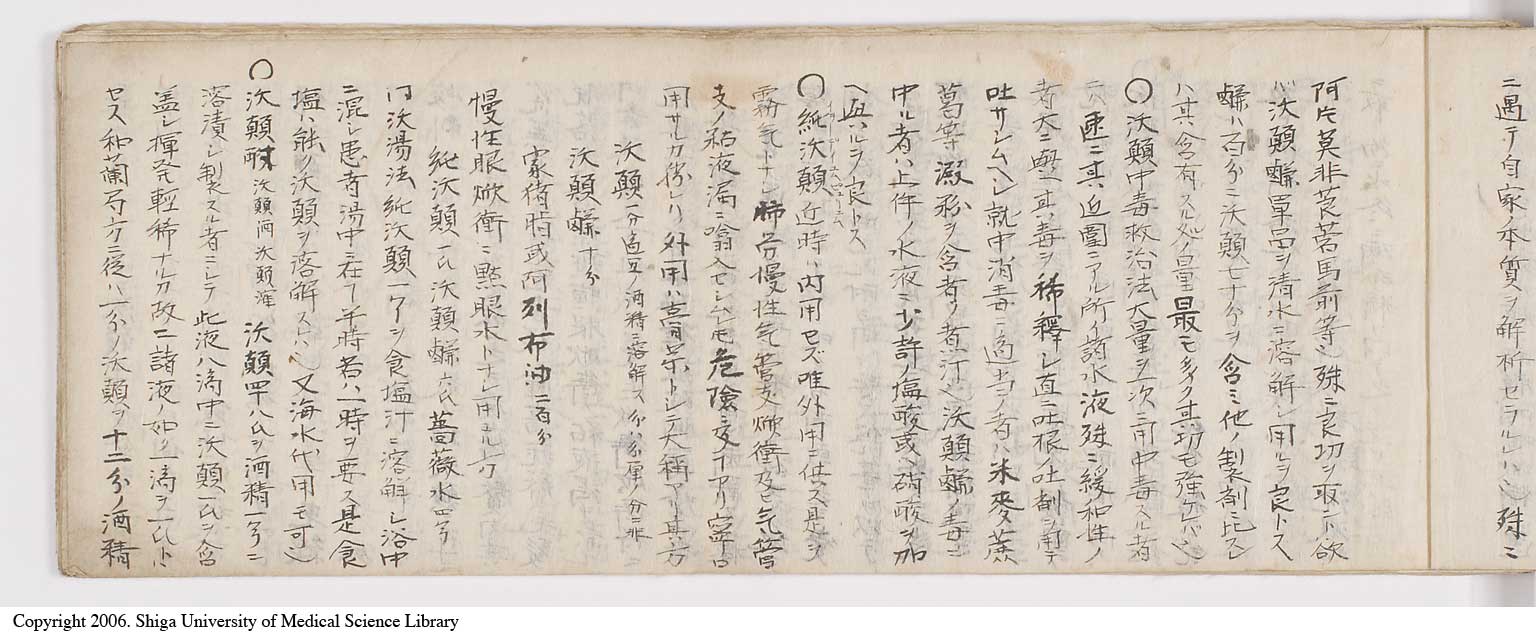 ニ遇テ自家ノ本質ヲ解析セラルレハ也殊ニ
阿片莫非莨菪馬前等也殊ニ良切ヲ取ント欲
ハ沃顛鹻単品ヲ清水ニ溶解シ用ルヲ良トス
鹻ハ百分ニ沃顛七十分ヲ含ミ他ノ製剤ニ比スレ
ハ其含有スル処ノ量最モ多ク其功モ強ケレハ也
〇沃顛中毒救治法大量ヲ一次ニ用中毒スル者
ハ速ニ其近圍ニアル所ノ諸水液殊ニ緩和性ノ
者大ニ與ヘ其毒ヲ稀釋シ直ニ吐根ノ吐剤ヲ用テ
吐サシムヘシ就中消毒ニ適当ノ者ハ米麥蕨
葛等澱粉ヲ含有ノ者汁也沃顛鹻ノ毒ニ
中ル者ハ上件ノ水液ニ少許ノ塩酸或ハ硝酸ヲ加
ヘ與ルヲ良トス
〇純沃顛近時ハ内用セズ唯外用ニ供ス是ヲ
霧気トナシ肺労慢性気管支焮衝及ヒ気管
支ノ粘液漏ニ噏入セシムレ𪜈危險ニ受ルヿアリ寧ロ
用サルカ勝レリ外用ハ喜百崇トシテ大稱アリ其方
沃顛一分適宜ノ酒精ニ溶解ス分ハ分厘ノ分ニ非
沃顛鹻十分
家猪脂或阿列布油二百分
慢性眼焮衝ニ點眼水トナシ用ユル方
純沃顛一氏沃顛鹻六氏薔薇水四ヲ
同沃湯法純沃顛一ヲヲ食塩汁ニ溶解シ浴中
ニ混シ患者湯中ニ在テ半時若ハ一時ヲ要ス是食
塩ハ能ク沃顛ヲ溶解スレハ也又海水代用モ可也
〇沃顛酎沃顛酒沃顛滓沃顛四十八氏ヲ酒精一ヲニ
溶漬シ製スル者ニシテ此液八滴中ニ沃顛一氏ヲ含
盖シ揮発輕稀ナルカ故ニ諸液ノ如ク一滴ヲ一氏ト
セス和蘭局方ニ従ハ一分ノ沃顛ヲ十二分ノ酒精
Copyright 2006. Shiga University of Medical Science Library